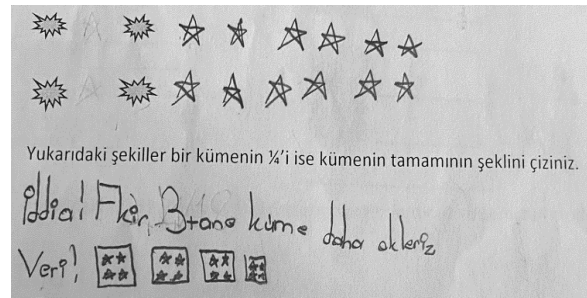 Yukarıdaki şekiller bir kümenin ¼'i ise kümenin tamamının şeklini çiziniz.
iddia! Fkir. 3 tane küme daha ekleriz
Veri!